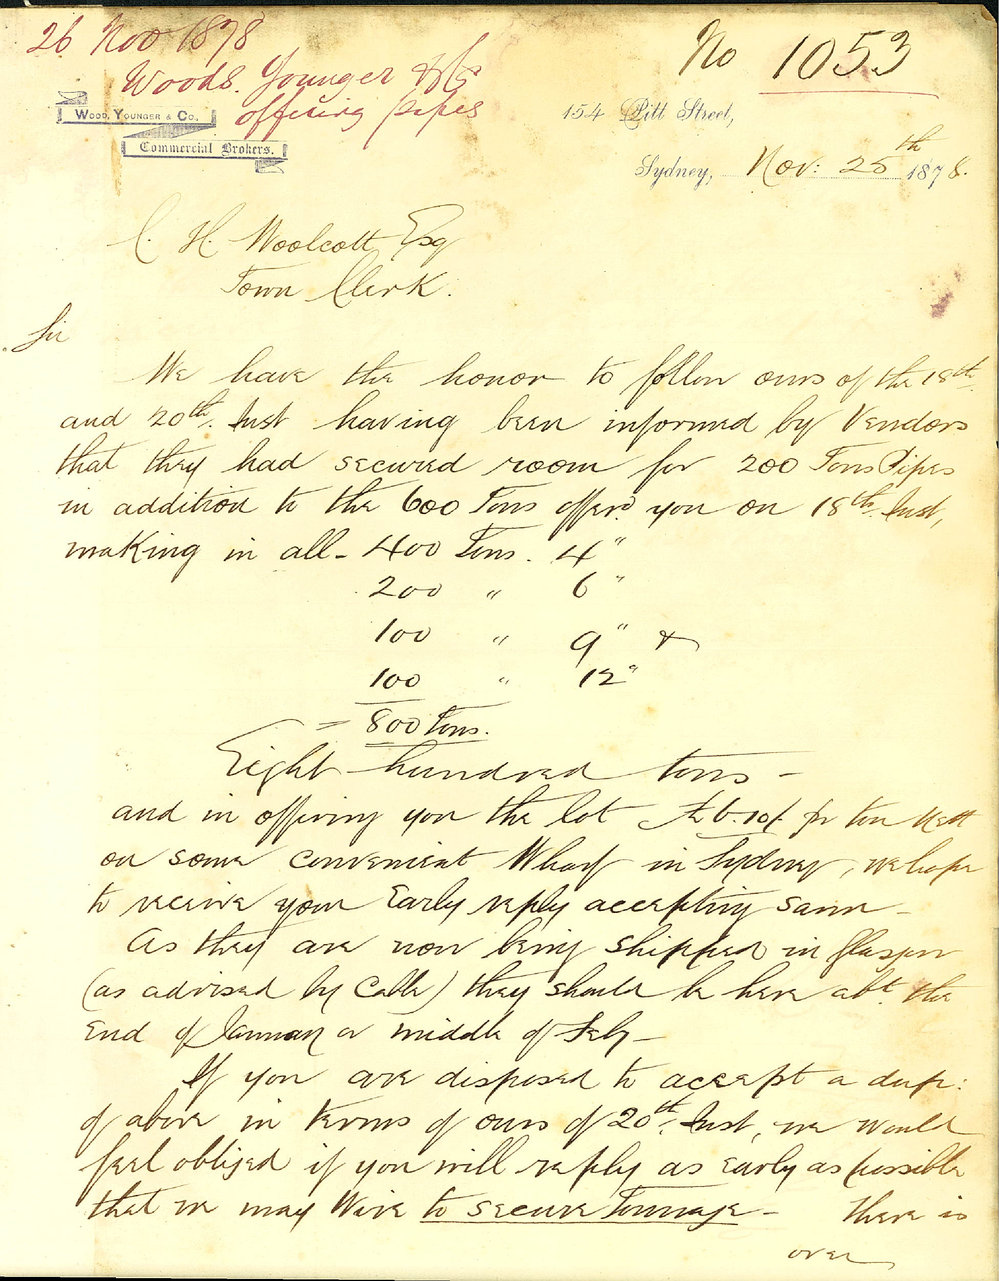 26 Nov 1878
Woods. Younger & Co
offering pipes
No 1053
WOOD, YOUNGER & CO.
Commercial Brokers.
154 Pitt Street,
Sydney, Nov: 25th 1878.
C. H. Woolcott Esq
Town Clerk.
Sir
We have the honor to follow ours of the 18th
and 20th. Inst having been informed by Vendors
that they had secured room for 200 Tons Pipes
in addition to the 600 Tons offerd. you on 18th. Inst,
making in all - 400 Tons. 4"
200 " 6"
100 " 9" &
100 " 12"
= 800 Tons.
Eight hundred tons -
and in offering you the lot £6.10/ pr ton nett
on some convenient Wharf in Sydney, we hope
to receive your Early reply accepting same -
As they are now being shipped in Glasgow
(as advised by Cable) they should be here abt. the
End of January or middle of Feby -
If you are disposed to accept a dup:
of above in terms of ours of 20th. Inst, we would
feel obliged if you will reply as early as possible
that we may Wire to secure Tonnage - There is
over